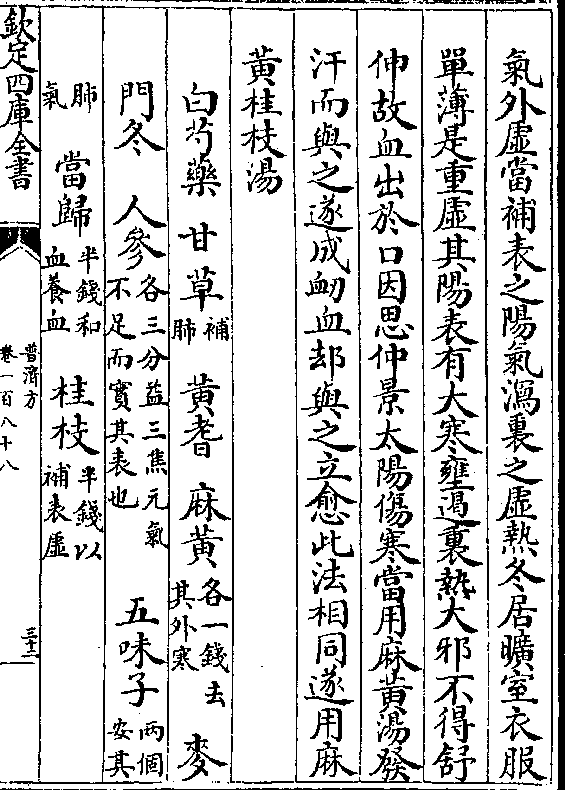 氣外虛當補表之陽氣瀉裏之虛熱冬居曠室衣服
單薄是重虛其陽表有大寒壅遏裏熱大邪不得舒
仲故血出於口因思仲景太陽傷寒當用麻黃湯發
汗而與之遂成衂血却與之立愈此法相同遂用麻
黃桂枝湯
白芍藥 甘草補肺 黃耆 麻黃各一錢去其外寒 麥
門冬 人參各三分益三焦元氣不足而實其表也 五味子兩個安其
肺氣 當歸半錢和血養血 桂枝半錢以補表虛
欽定四庫全書
普濟方
卷一百八十八
三十二